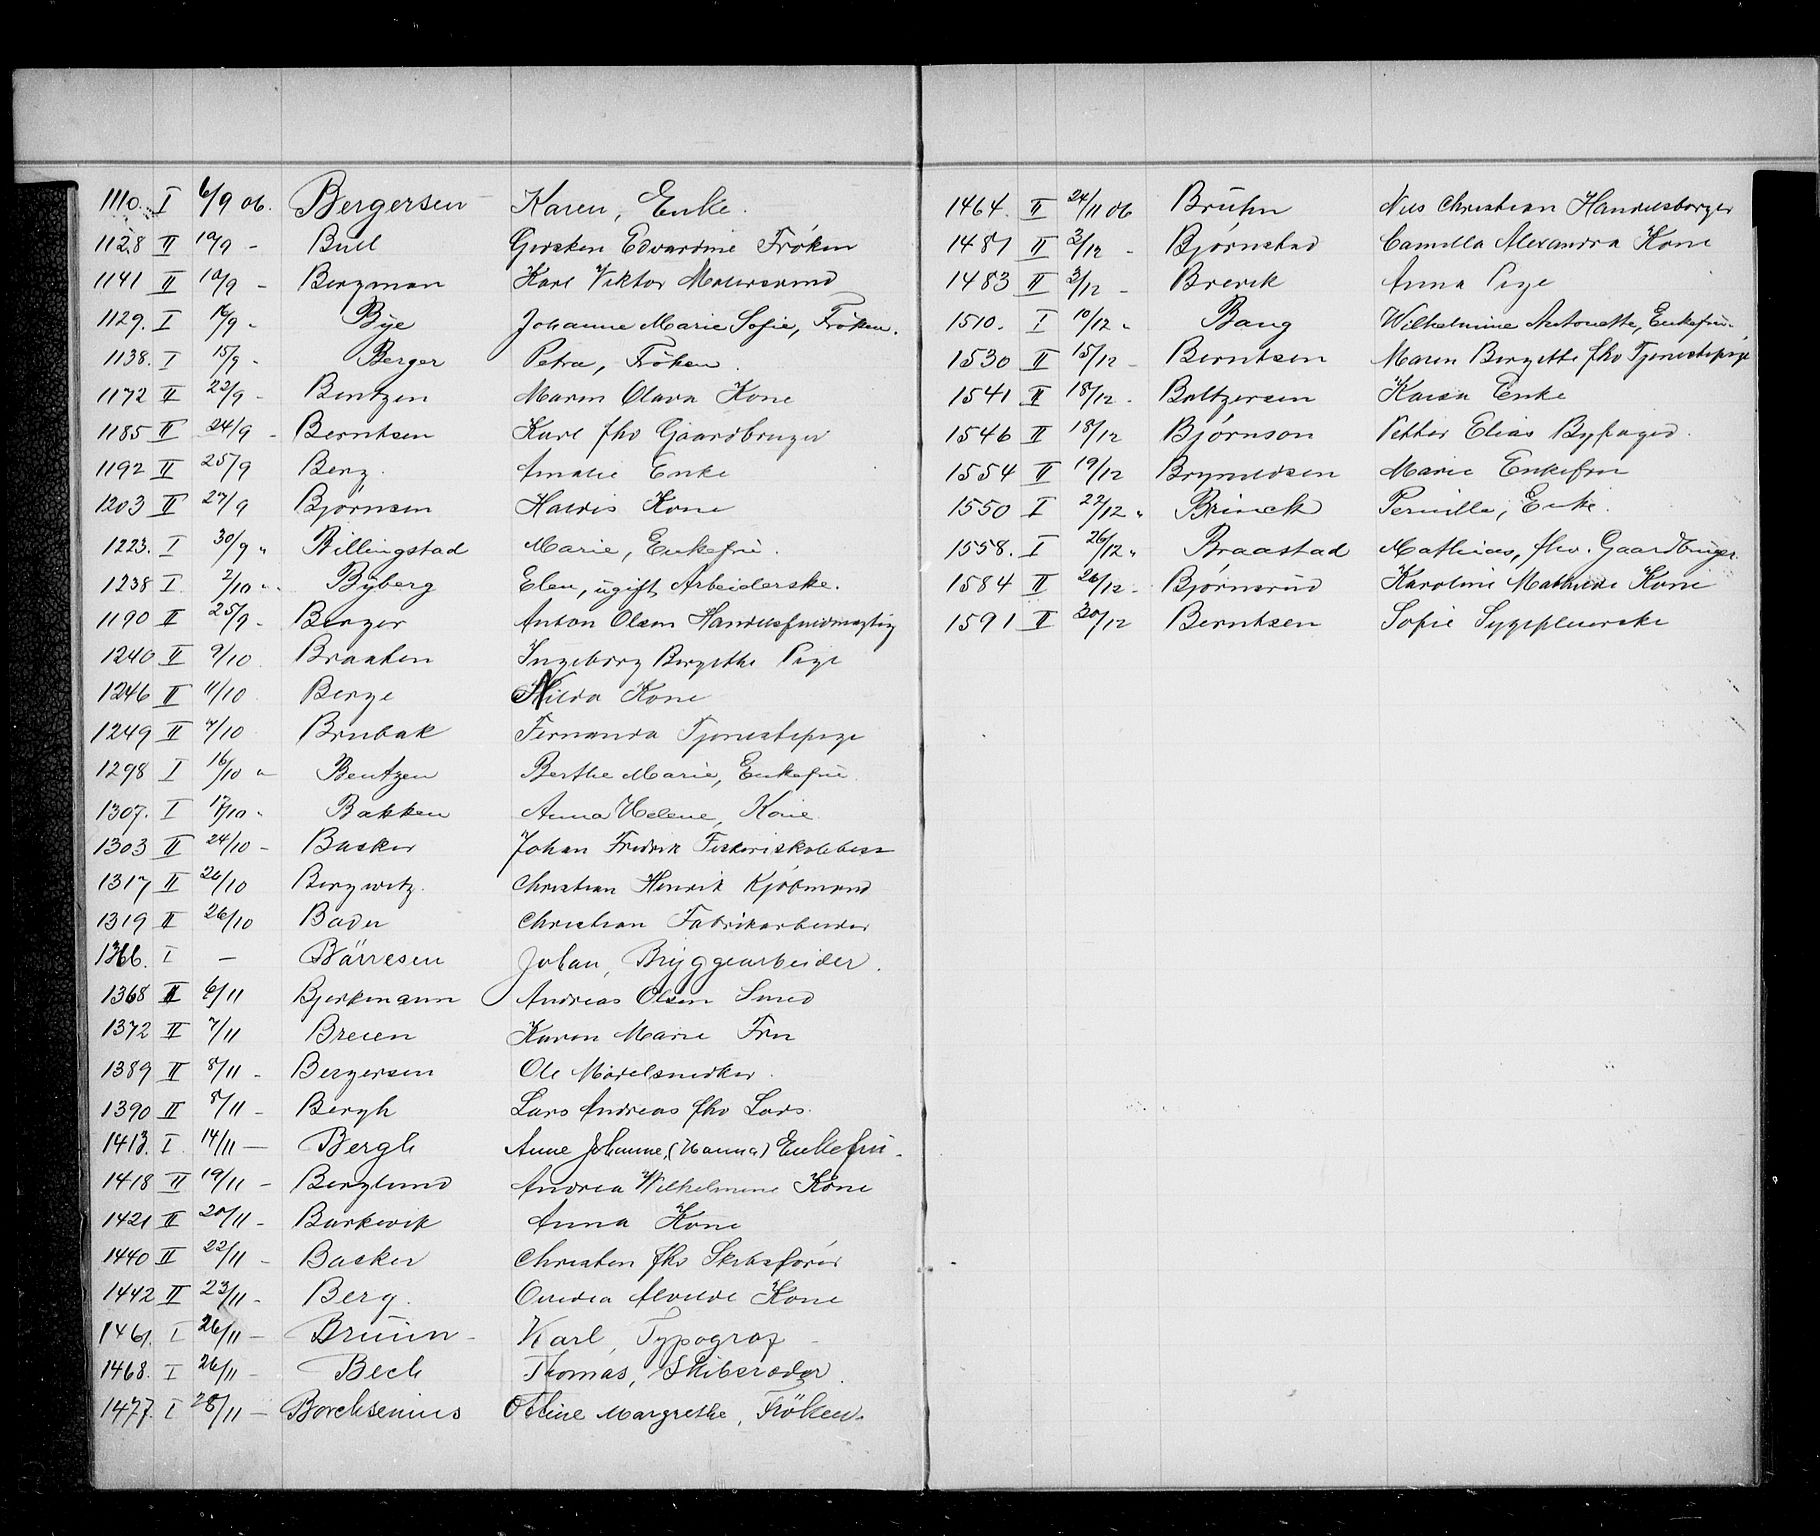 1110. I 6/9 06. Bergersen Karen, Enke.
1128 II 10/9 - Bull Gersken Edvardine Frøken
1141 II 10/9 - Bergman Karl Viktor Malersvend
1129. I 16/9 - Bÿe Johanne Marie Sofie, Frøken.
1138. I 15/9 - Berger Petra, Frøken.
1172 II 22/9 - Bentzen Maren Olava Kone
1185 II 24/9 - Berntsen Karl fhv Gaardbruger
1192 II 25/9 Berg. Amalie Enke
1203 II 27/9 Bjørnsen Haldis Kone
1223. I 30/9 " Billingstad Marie, Enkefru.
1238 I 2/10 " Bÿberg Elen, ugift Arbeiderske.
1190 II 25/9 - Berger Anton Olsen Handelsfuldmægtig
1240 II 9/10 Braaten Ingeborg Bergitte Pige
1246 II 11/10 Berge Hilda Kone
1249 II 7/10 Brubak Fernanda Tjenestepige
1298 I 16/10 " Bentzen Berthe Marie, Enkefru.
1307. I 17/10 " Bakken Anna Helene, Kone
1303 II 24/10 - Backer Johan Fredrik
1317 II 26/10 Bergwitz. Christian Henrik Kjøbmand
1319 II 26/10 Bader Christian Fabrikarbeider
1366. I - Børresen Johan, Brÿggearbeider.
1368 II 6/11 Bjerkmann Andreas Olsen Smed
1372 II 7/11 Breien Karen Marie Fru
1389 II 8/11 - Bergersen Ole Møbelsnedker.
1390 II 8/11 - Bergh Lars Andreas fhv Lods.
1413. I 14/11 - Bergh Anne Johanne, (Hanna) Enkefru.
1418 II 19/11 - Berglund Andrea Wilhelmine Kone
1421 II 20/11 - Barkevik Anna Kone
1440 II 22/11 - Backer Christen fhv Skibsfører
1442 II 23/11 - Berg. Ovedia Alvilde Kone
1461. I 26/11 - Bruun - Karl, Typograf -
1468. I 26/11 - Bech Thomas, Skibsreder.
1477. I 28/11 - Borchsenius Oline Margrethe, Frøken.
1464. II 24/11 06 Brühn Nils Christian Handelsborger
1481 II 3/12 - Bjørnstad Camilla Alexandra Kone
1483 II 3/12 - Brevik Anna Pige
1510. I 10/12 " Bang Wilhelmine Antonette, Enkefru.
1530 II 15/12 - Berntsen Maren Bergitte fhv Tjenestepige
1541 II 18/12 - Baltzersen Kaisa Enke
1546 II 18/12 Bjørnson Petter Elias Byfoged.
1554 II 19/12 Brynildsen Marie Enkefru
1550 I 22/12 " Brinck Pernille, Enke.
1558. I 26/12 " Braastad Mathias, fhv. Gaardbruger.
1584 II 26/12 - Bjørnerud Karoline Mathilde Kone
1591 II 30/12 Berntsen Sofie Sygepleierske